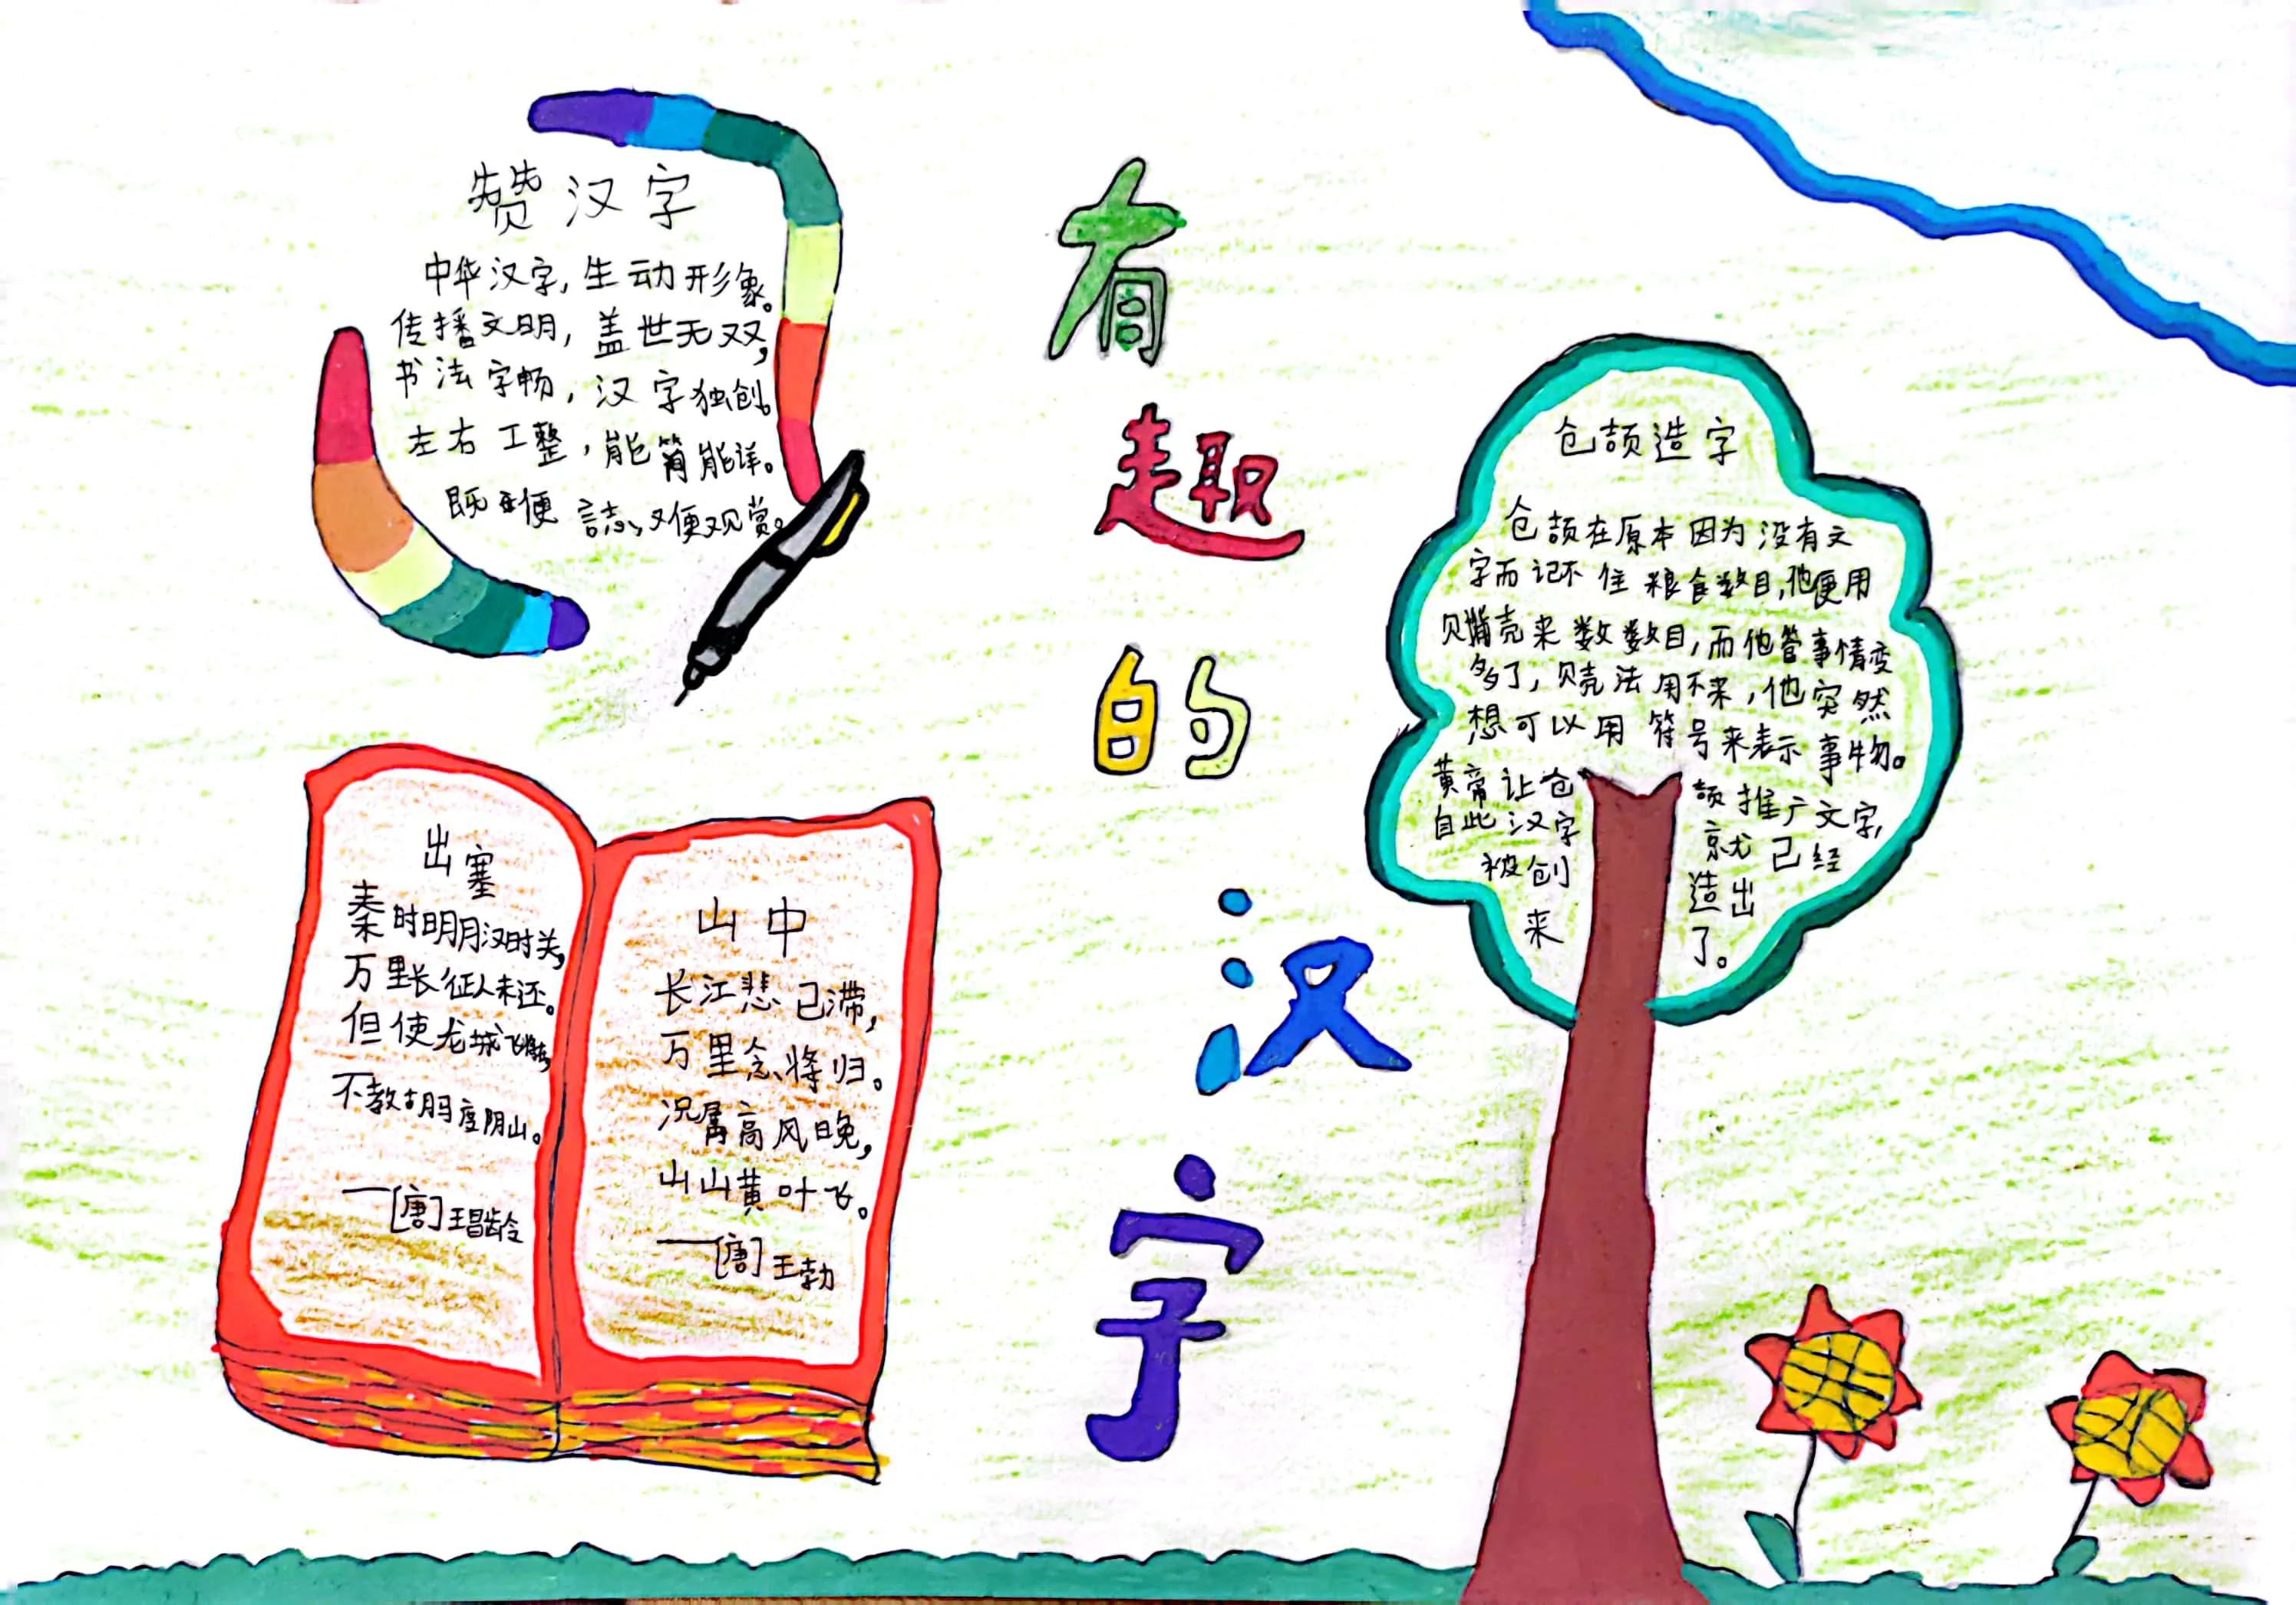 有趣的汉字
赞汉字
中华汉字,生动形象。
传播文明,盖世无双,
书法字畅,汉字独创。
左右工整,能简能详。
既便誌、又便观赏。
出塞
秦时明月汉时关,
万里长征人未还。
但使龙城飞将,
不教胡马度阴山。
——[唐]王昌龄
山中
长江悲已滞,
万里念将归。
况属高风晚,
山山黄叶飞。
——[唐]王勃
仓颉造字
仓颉在原本因为没有文
字而记不住粮食数目,他便用
贝壳来数数目,而他管事情变
多了,贝壳法用不来,他突然
想可以用符号来表示事物。
黄帝让仓颉推广文字,
自此汉字就已经
被创造出
来了。